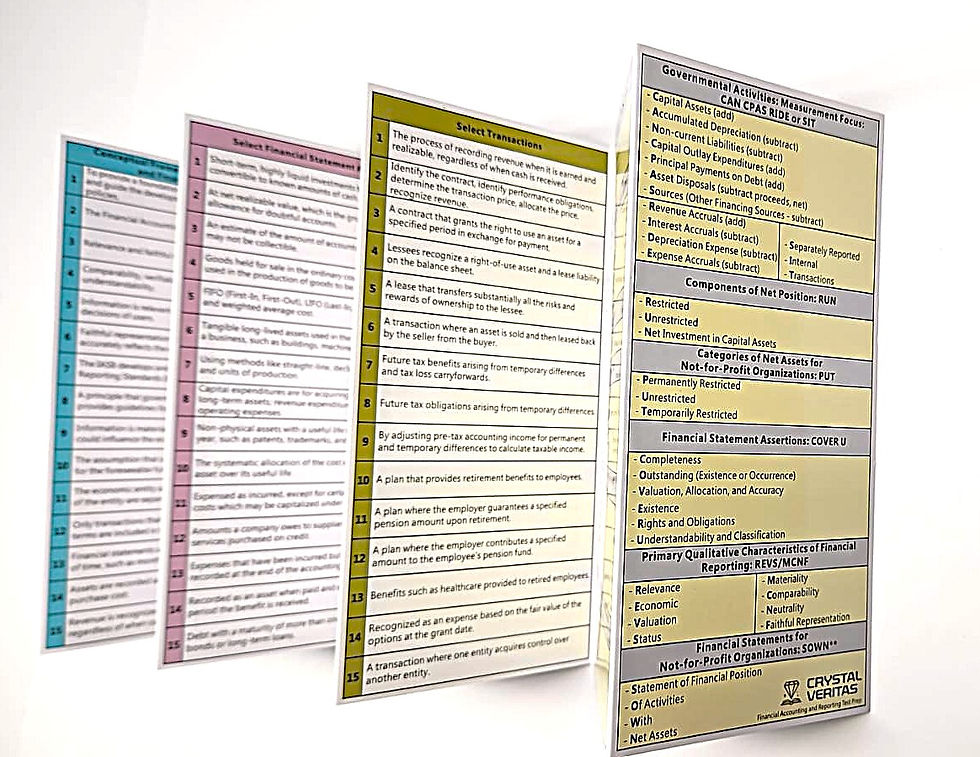 1
2
The Financial
3
Relevance and
4
5
6
Faithful
7
8
A principle that
provides
9
Information is
could influence the
10
The assumption that
11
The economic
12
Only transactions
13
Financial statements
14
Assets are recorded
purchase cost.
15
Revenue is
Select Financial Statement
1
Short-term, highly liquid investments
convertible to known amounts of
2
At net realizable value, which is the
allowance for doubtful accounts.
3
An estimate of the amount of accounts
may not be collectible.
4
Goods held for sale in the ordinary
used in the production of goods to be
5
FIFO (First-In, First-Out), LIFO
and weighted average cost.
6
Tangible long-lived assets used in
a business, such as buildings,
7
Using methods like straight-line,
and units of production.
8
Capital expenditures are for acquiring
long-term assets; revenue
operating expenses.
9
Non-physical assets with a useful
year, such as patents, trademarks, and
10
The systematic allocation of the cost
asset over its useful life
11
Expensed as incurred, except for
costs which may be capitalized under
12
Amounts a company owes to
services purchased on credit.
13
Expenses that have been incurred but
recorded at the end of the accounting
14
Recorded as an asset when paid and
period the benefit is received.
15
Debt with a maturity of more than
bonds or long-term loans.
Select Transactions
1
The process of recording revenue when it is earned and
realizable, regardless of when cash is received.
2
Identify the contract, identify performance obligations,
determine the transaction price, allocate the price,
recognize revenue.
3
A contract that grants the right to use an asset for a
specified period in exchange for payment.
4
Lessees recognize a right-of-use asset and a lease liability
on the balance sheet.
5
A lease that transfers substantially all the risks and
rewards of ownership to the lessee.
6
A transaction where an asset is sold and then leased back
by the seller from the buyer.
7
Future tax benefits arising from temporary differences
and tax loss carryforwards.
8
Future tax obligations arising from temporary differences
9
By adjusting pre-tax accounting income for permanent
and temporary differences to calculate taxable income.
10
A plan that provides retirement benefits to employees.
11
A plan where the employer guarantees a specified
pension amount upon retirement.
12
A plan where the employer contributes a specified
amount to the employee's pension fund.
13
Benefits such as healthcare provided to retired employees.
14
Recognized as an expense based on the fair value of the
options at the grant date.
15
A transaction where one entity acquires control over
another entity.
Governmental Activities: Measurement Focus:
CAN CPAS RIDE or SIT
- Capital Assets (add)
- Accumulated Depreciation (subtract)
- Non-current Liabilities (subtract)
- Capital Outlay Expenditures (add)
- Principal Payments on Debt (add)
- Asset Disposals (subtract proceeds, net)
- Sources (Other Financing Sources - subtract)
- Revenue Accruals (add)
- Interest Accruals (subtract)
- Depreciation Expense (subtract)
- Expense Accruals (subtract)
- Separately Reported
- Internal
- Transactions
Components of Net Position: RUN
- Restricted
- Unrestricted
- Net Investment in Capital Assets
Categories of Net Assets for
Not-for-Profit Organizations: PUT
- Permanently Restricted
- Unrestricted
- Temporarily Restricted
Financial Statement Assertions: COVER U
- Completeness
- Outstanding (Existence or Occurrence)
- Valuation, Allocation, and Accuracy
- Existence
- Rights and Obligations
- Understandability and Classification
Primary Qualitative Characteristics of Financial
Reporting: REVS/MCNF
- Relevance
- Economic
- Valuation
- Status
- Materiality
- Comparability
- Neutrality
- Faithful Representation
Financial Statements for
Not-for-Profit Organizations: SOWN**
- Statement of Financial Position
- Of Activities
- With
- Net Assets
CRYSTAL
VERITAS
Financial Accounting and Reporting Test Prep